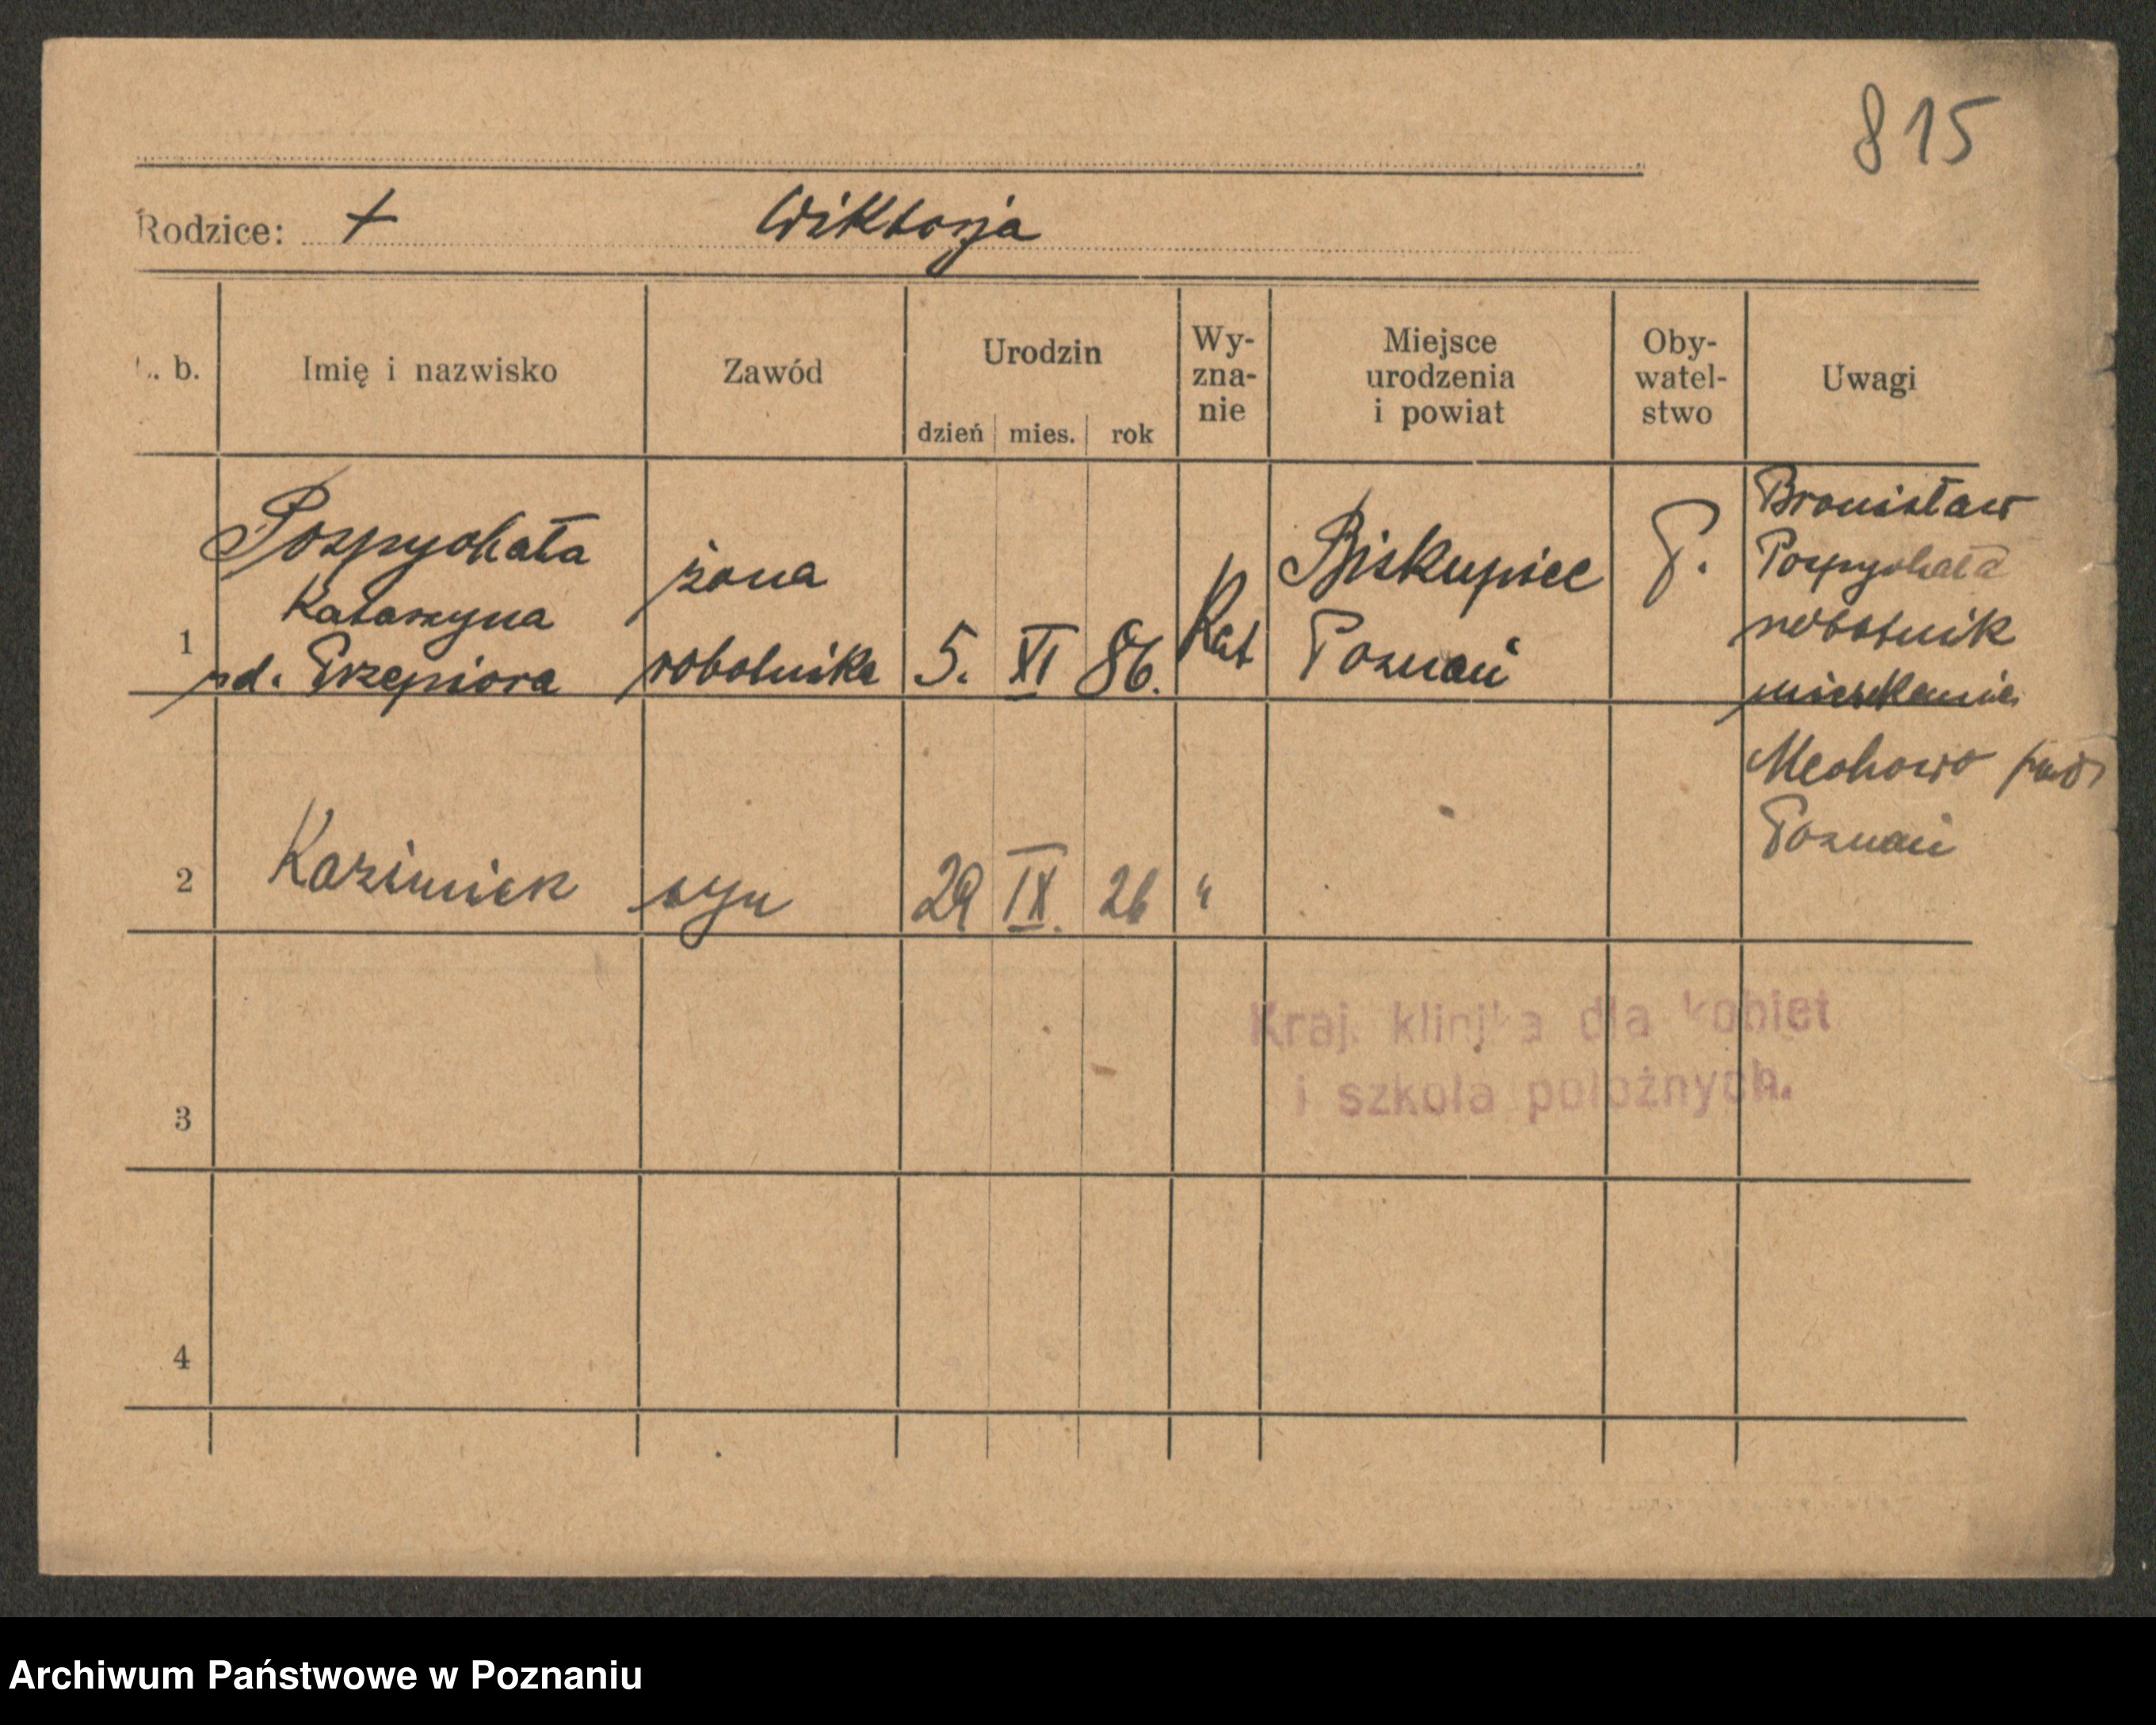 815
Rodzice: + Wiktorja
L. b. Imię i nazwisko Zawód Urodzin dzień mies. rok Wy-zna-nie Miejsce urodzenia i powiat Oby-watel-stwo Uwagi
Pospychała
Katarzyna
żona
1 rd. Grzepiora robotnika 5. XI 86. Kat
Biskupiec
Poznań
P.
Bronisław
Pospychała
robotnik
mieszkanie
Mechowo pow
Poznań
2 Kazimierz syn 29 IX. 26 "
Kraj. klinika dla kobiet
i szkoła położnych.
3
4
Archiwum Państwowe w Poznaniu